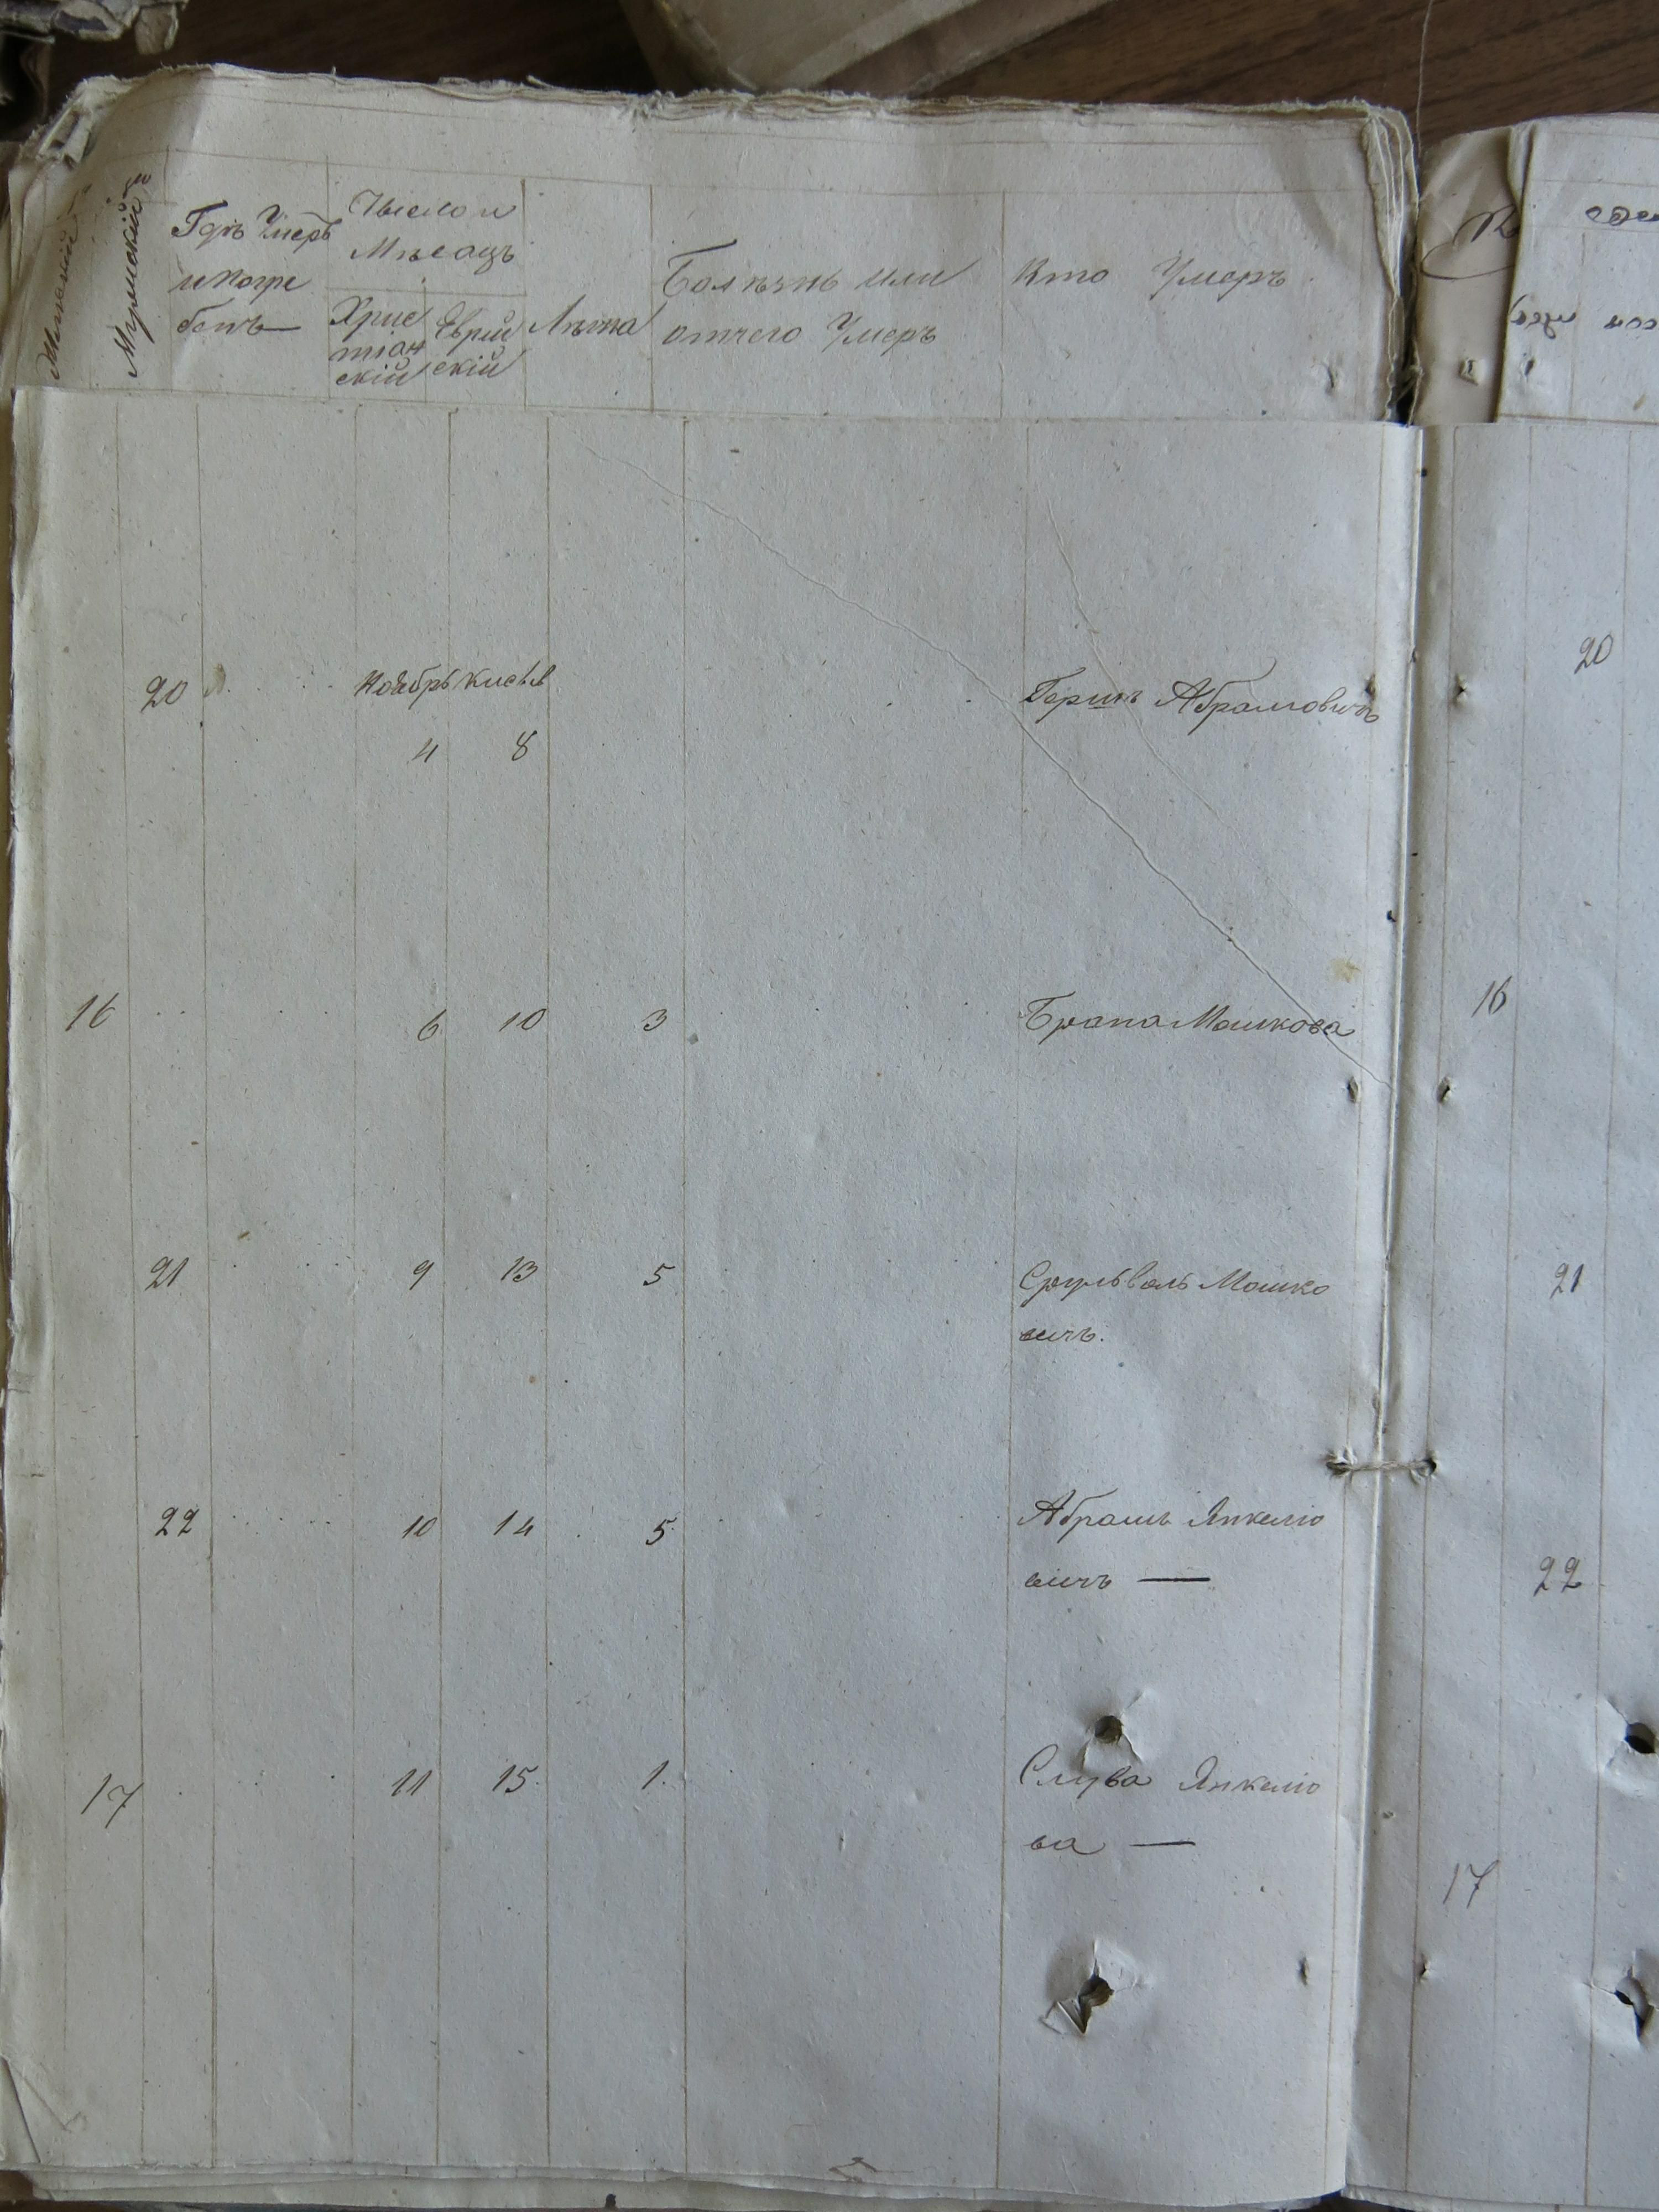 Женскій
Мужскій
Гдѣ Умеръ
и погре
бенъ
Число и
Мѣсяцъ
Хрис
тіан
скій
Еврей
скій
Лѣта
Болѣзнь или
отчего Умеръ
Кто Умеръ
20 Ноябрь Кисьлв Гершъ Абрамовичъ
4 8
20
16 6 10 3 Брана Мошкова
16
21 9 13 5 Сруль Мошко
вичъ.
21
22 10 14 5 Абрамъ Янкелю
вичъ —
22
17 11 15 1. Слува Янкелю
ва —
17